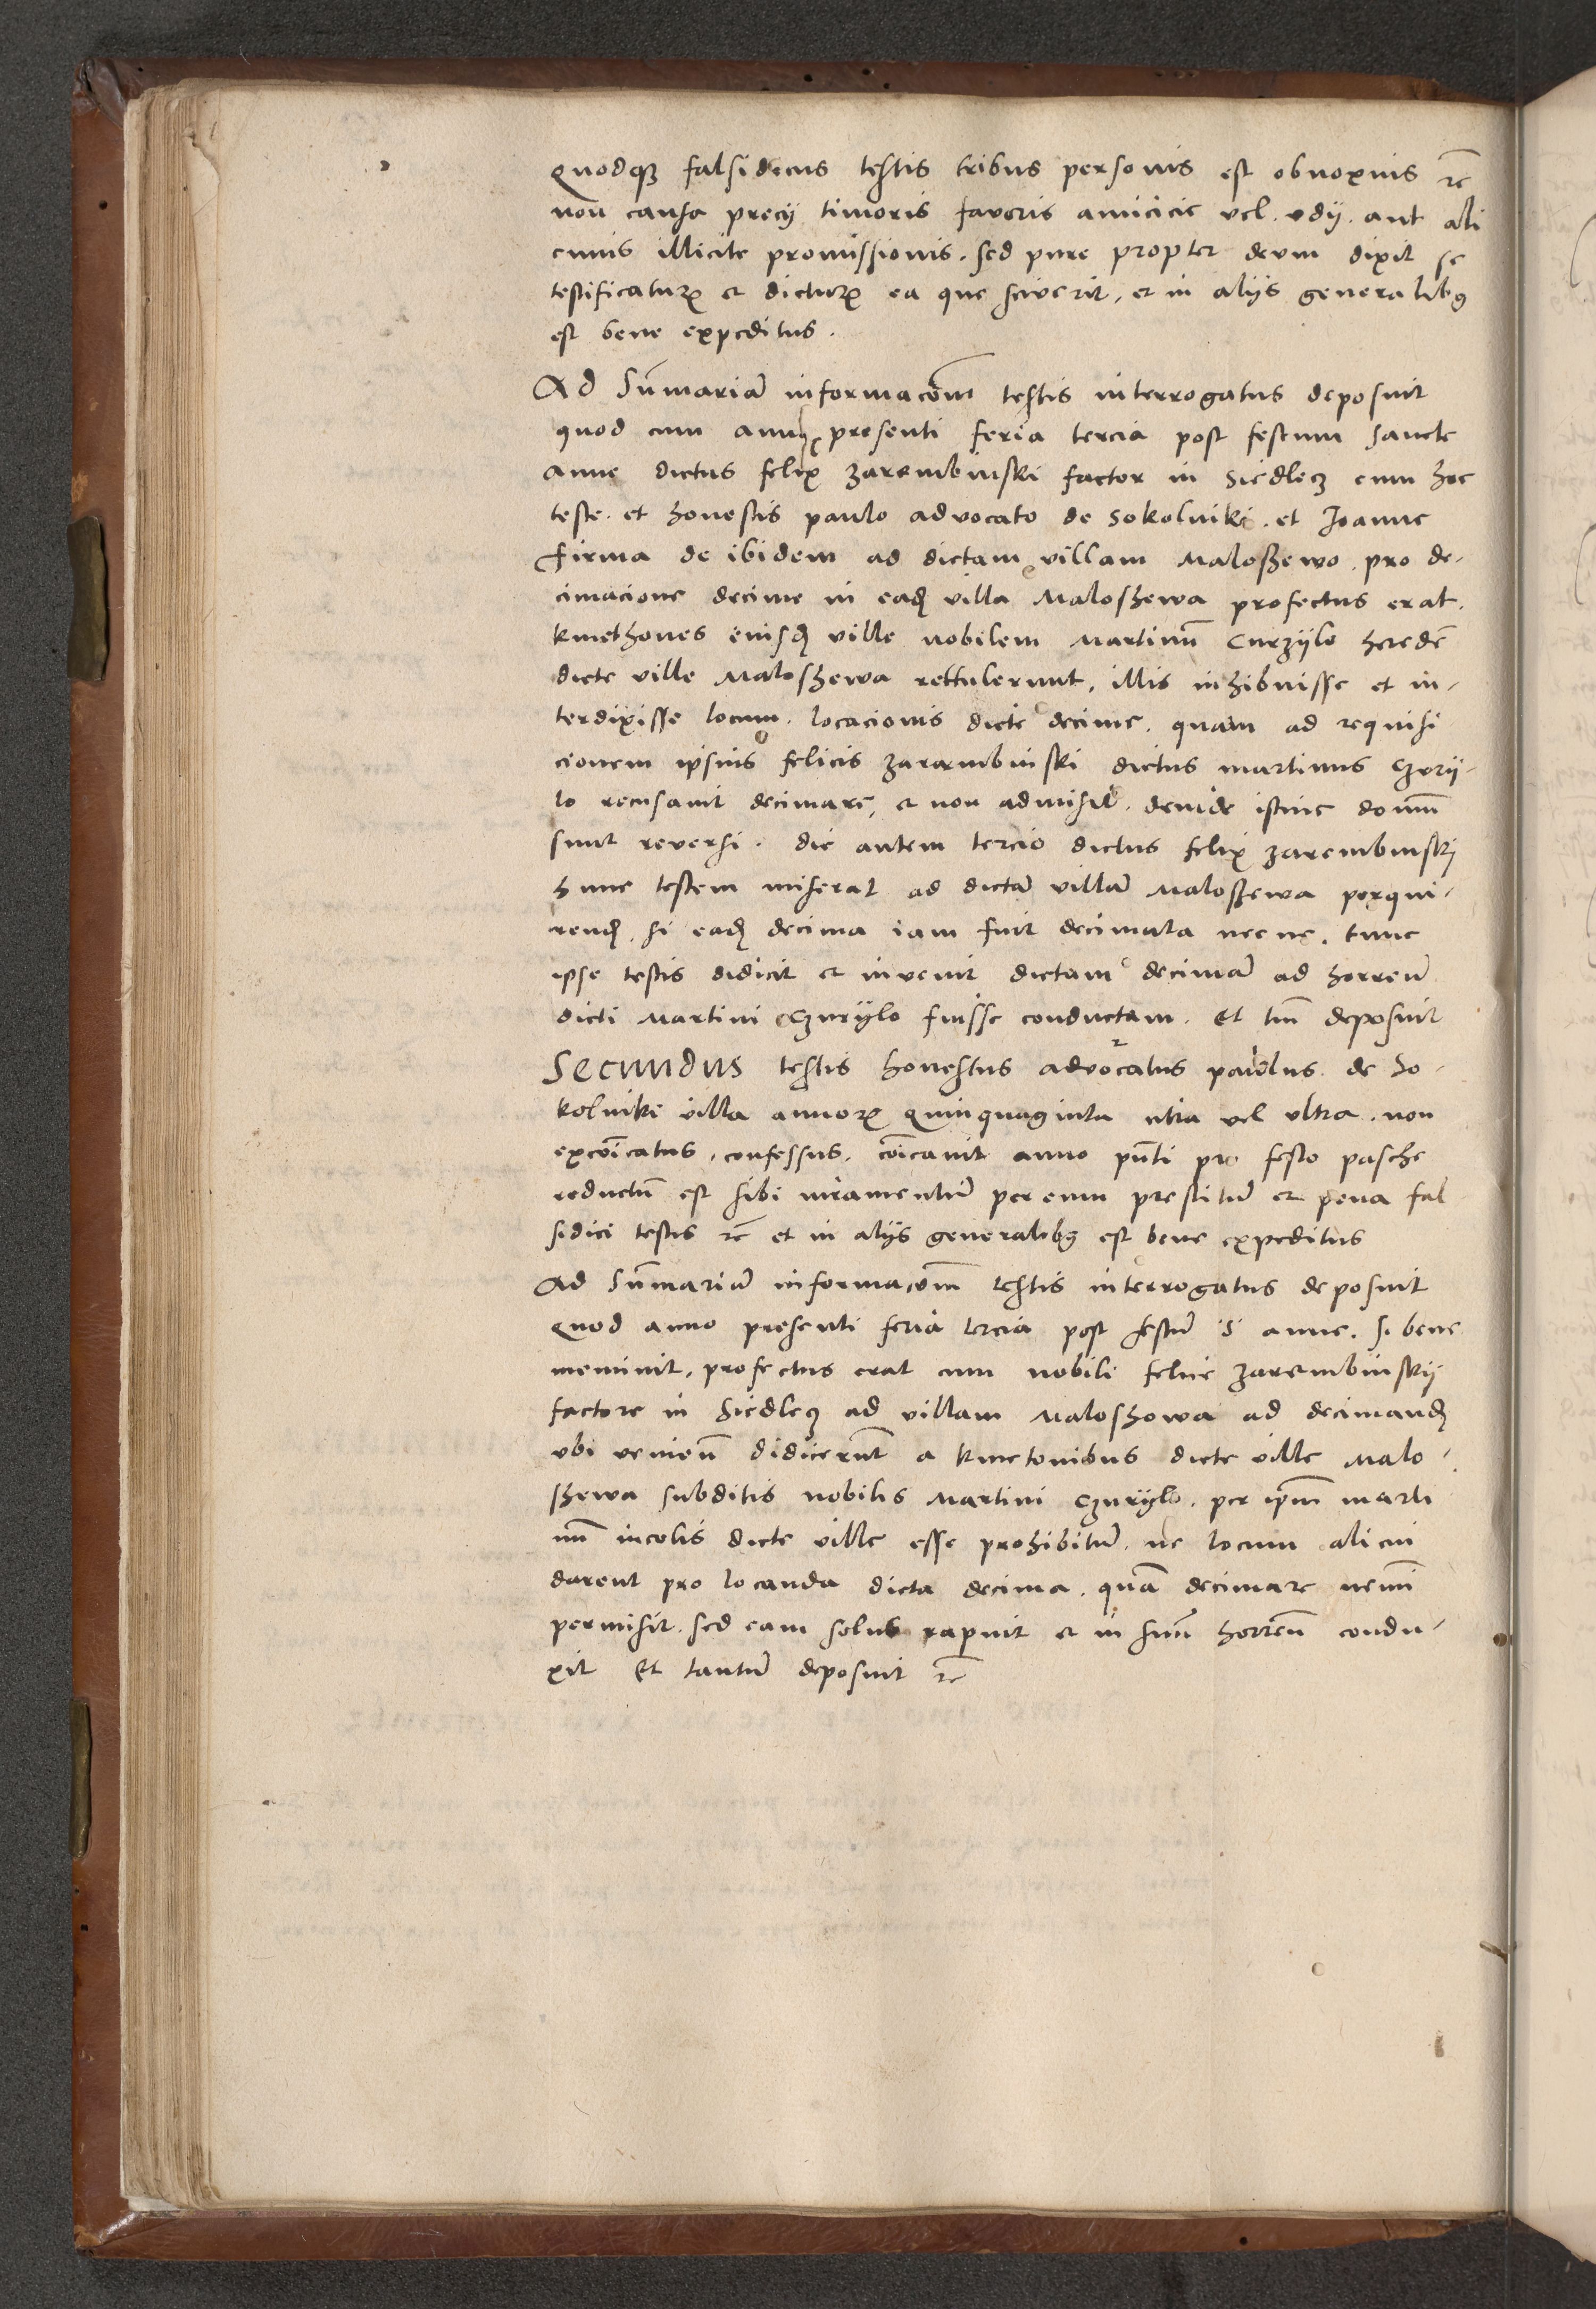 quodqꝫ falsidicus testis tribus personis est obnoxius rc̄
non causa precij timoris favoris amicicie vel odij aut ali
cuius illicite promissionis. sed pure propter deum dixit se
testificaturꝝ et dicturꝝ ea que sciverit, et in alijs generalibꝰ
est bene expeditus.
Ad Sūmariā informacōm testis interrogatus deposuit
quod cum anno presenti feria tercia post festum sancte
Anne dictus felix zarembinski factor in Siedlecz cum hoc
teste. et honestis paulo advocato de Sokolniki. et Joanne
firma de ibidem ad dictam villam Maloszewo. pro de-
cimacione decime in eadꝫ villa Maloszewa profectus erat.
kmethones eiusdꝫ ville nobilem Martinū Curzijlo heredē
dicte ville Maloszewa rettulerunt, illis inhibuisse et in-
terdixisse locum. locacionis dicte decime. quam ad requisi
cionem ipsius felicis zarambinski dictus martinus Czurij-
lo recusavit decimare, et non admisit. deinde istinc domū
sunt reversi. die autem tercio dictus felix zarembinskj
hunc testem miserat ad dictā villā Maloszewa perqui-
rendꝫ. si eadꝫ decima iam fuit decimata necne. tunc
ipse testis didicit et invenit dictam decimā ad horreū
dicti Martini Czurijlo fuisse conductam. Et tm̄ deposuit
Secundus testis honestus advocatus paulus de So-
kolniki villa annorꝝ quinquaginta citra vel ultra. non
excōicatus, confessus. cōicavit anno pn̄ti pro festo pasche
reductū est sibi iuramentū per eum prestitū et pena fal
sidici testis rc̄ et in alijs generalibꝰ est bene expeditus
Ad Sūmariā informacōm testis interrogatus deposuit
quod anno presenti feria tercia post festū S anne. si bene
meminit, profectus erat cum nobili felice zarembinskij
factore in Siedlecz ad villam Maloszowa ad decimandꝫ
ubi venien̄ didicerūt a kmetonibus dicte ville Malo-
szewa subditis nobilis Martini Czurijlo. per ipm̄ marti
nū incolis dicte ville esse prohibitū. ne locum alicui
darent pro locanda dicta decima. quā decimare nemī
permisit. sed eam solus rapuit et in suū horreū condu-
xit Et tantū deposuit rc̄